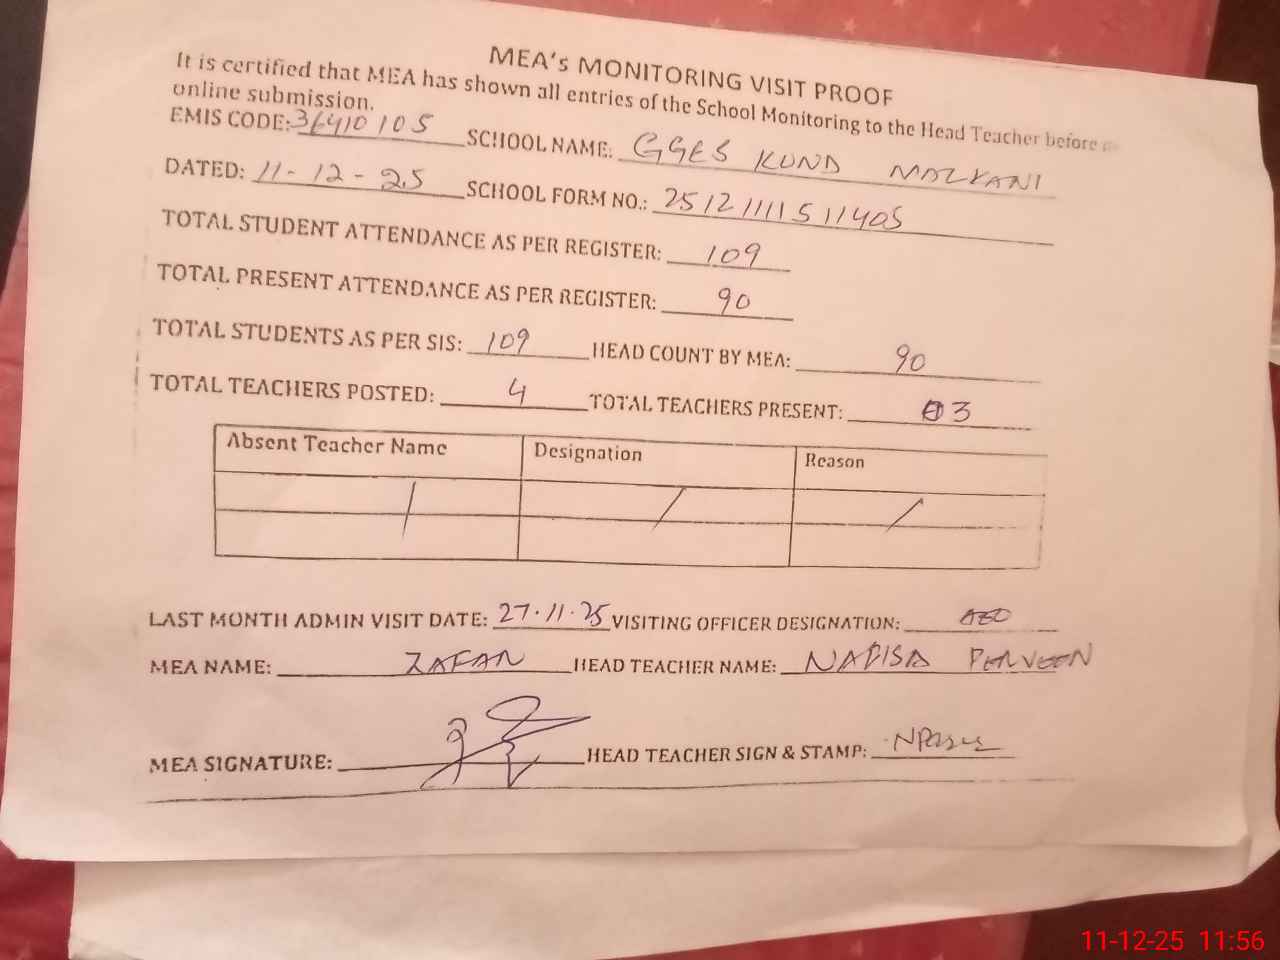 MEA's MONITORING VISIT PROOF
It is certified that MEA has shown all entries of the School Monitoring to the Head Teacher before
online submission.
EMIS CODE: 36410105 SCHOOL NAME: GGES KUND MALKANI
DATED: 11-12-25 SCHOOL FORM NO.: 25121111511405
TOTAL STUDENT ATTENDANCE AS PER REGISTER: 109
TOTAL PRESENT ATTENDANCE AS PER REGISTER: 90
TOTAL STUDENTS AS PER SIS: 109 HEAD COUNT BY MEA: 90
TOTAL TEACHERS POSTED: 4 TOTAL TEACHERS PRESENT: 3
Absent Teacher Name Designation Reason
/ / /
LAST MONTH ADMIN VISIT DATE: 27.11.25 VISITING OFFICER DESIGNATION: AEO
MEA NAME: ZAFAR HEAD TEACHER NAME: NAFISA PERVEEN
MEA SIGNATURE: HEAD TEACHER SIGN & STAMP:
11-12-25 11:56